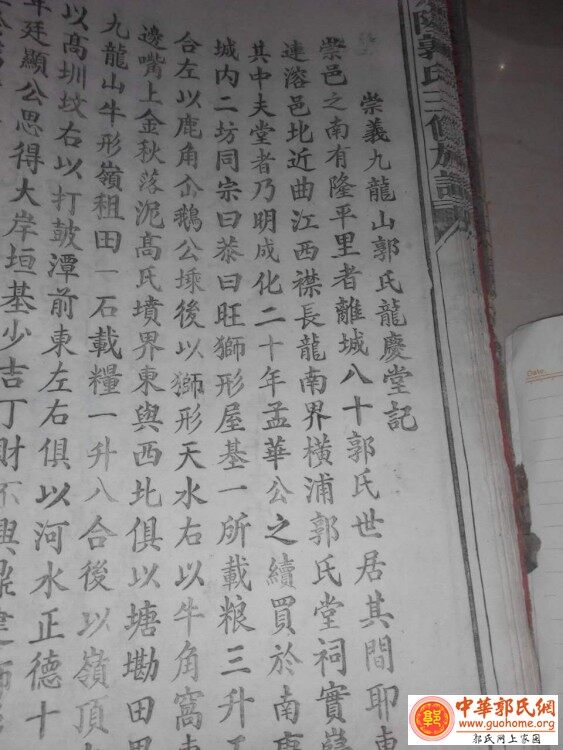 隆郭氏三修族譜
崇義九龍山郭氏龍慶堂記
崇邑之南有隆平里者離城八十郭氏世居其間耶東
連溶邑北近曲江西襟長龍南界橫浦郭氏堂祠實
其中夫堂者乃明成化二十年孟華公之續買於南康
城内二坊同宗曰恭曰旺獅形屋基一所載粮三升
合左以鹿角仚鵝公墩後以獅形天水右以牛角窩
邊嘴上金秋落泥高氏墳界東與西北俱以塘勘田
九龍山牛形嶺租田一石載糧一升八合後以嶺頂
以高圳坟右以打皷潭前東左右俱以河水正德十
年廷顯公思得大岸垣基少吉丁財不興
Date.
中華郭氏網
www.guohome.org
郭氏网上家园